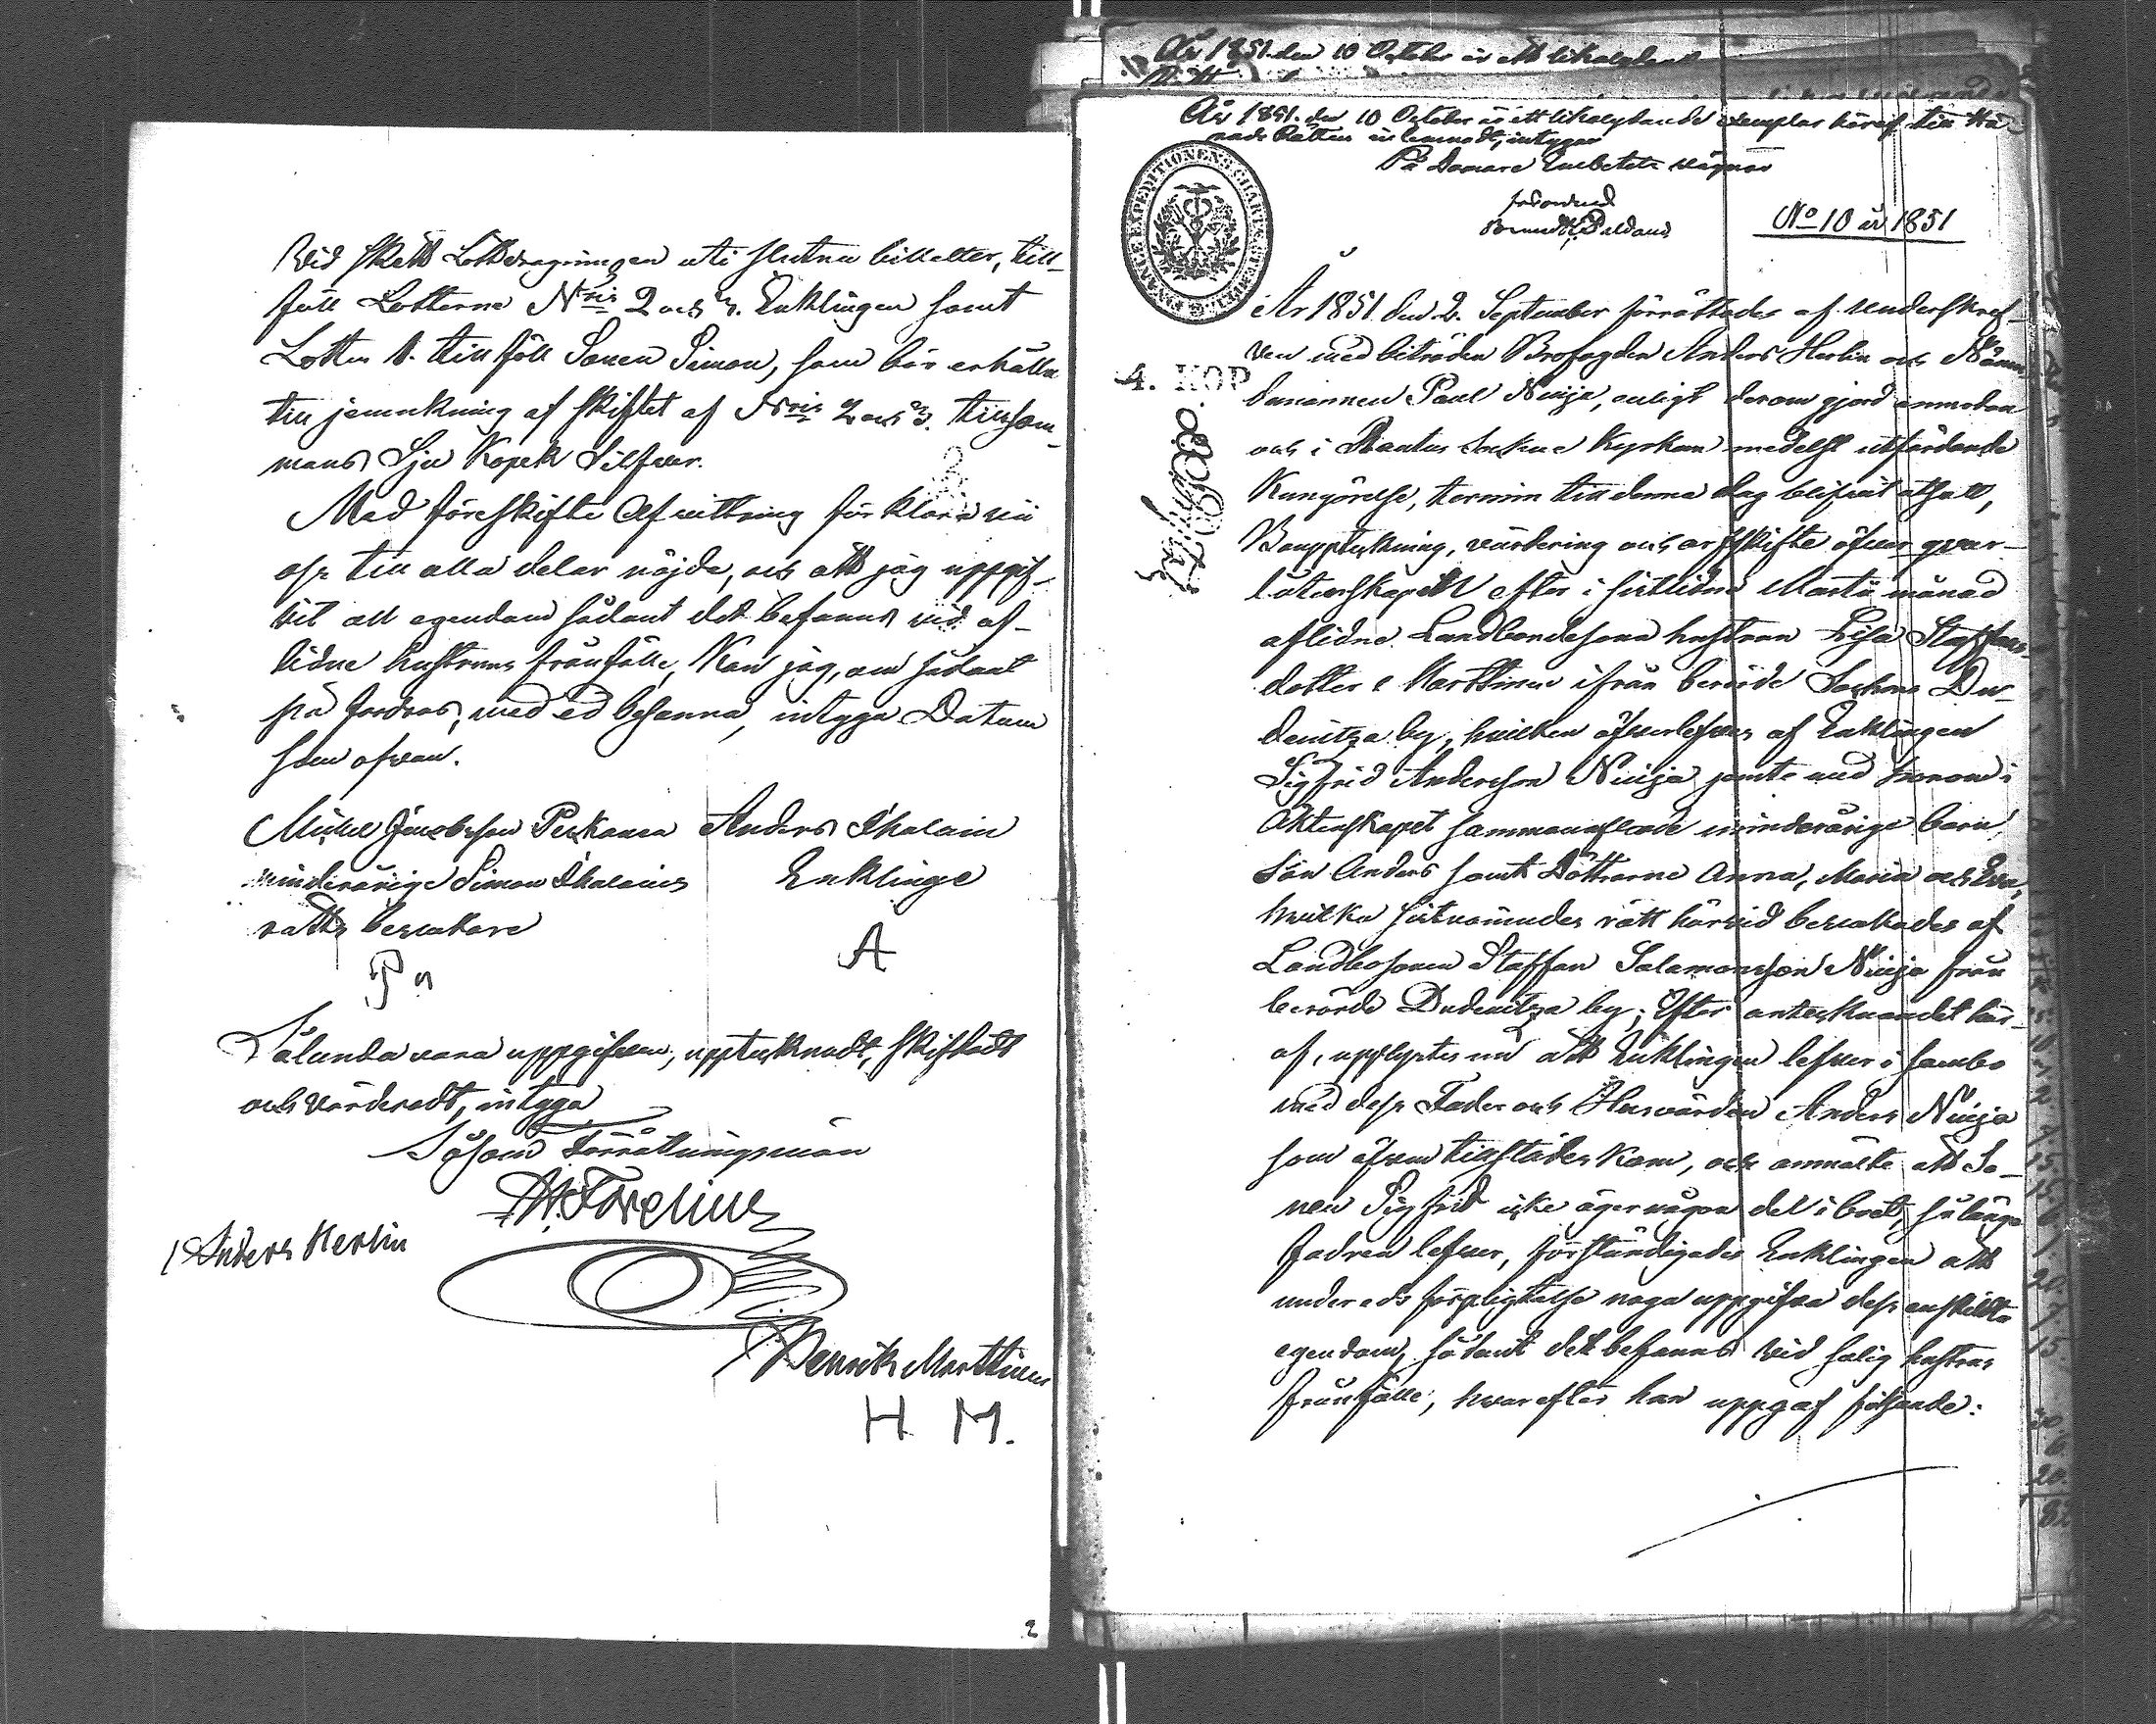 Vid skedd Lottdragningen uti slutna billetter, till-
föll Lotterne N:ris 2 och 3. Enklingen samt
Lotten 1. tillföll Sonen Simon, som bör erhålla
till jemnkning af skiftet af N:ris 2 och 3. tillsam-
mans Sju Kopek Silfver.
Med föreskifte Afvittring förklara vi
oss till alla delar nöjda, och att jag uppgif-
vit all egendom sådant det befanns vid af-
lidne hustruns frånfälle, Kan jag, om sådant
på fordras, med ed besanna, intyga Datum
som ofvan.
Mickel Jacobsson Peskonen
minderårige Simon Ikalains
rätts bevakare
P n
Anders Ikalain
Enklinge
A
Sålunda vara uppgifven, upptecknadt, skiftadt
och värderadt, intyga
Såsom Förrättningsmän
Anders Herlin
Henrik Marttinen
H M.
2
År 1851 den 10 October är ett likalydande
År 1851. den 10 October är ett likalydande exemplar häraf till Hä-
rads Rätten inlemnadt, intygar
På Domare Embetets vägnar
N:o 10 år 1851
FINANCE EXPEDITIONENS CHARTÆ
4. KOP
År 1851 den 2. September förrättades af underskref-
ven med biträden Brofogden Anders Herlin och Nämn-
demannen Paul Nuija, enligt derom gjord anmodan
och i Rautus Sockne Kyrkan medelst utfärdande
Kungörelse, termin till denna dag blifvit utsatt,
Bouppteckning, värdering och arfskifte öfver qvar-
låtenskapet efter i sistlidne Martii månad
aflidne Landbondesons hustrun Lisa Staffans-
dotter Marttinen ifrån berörde Sockens Du-
denitza by, hvilken öfverlefves af Enklingen
Sigfrid Andersson Nuija jemte med honom i
Äktenskapet sammanaflade minderårige barn,
Son Anders samt Döttrarne Anna, Maria och Eva,
hvilka sistnämndes rätt härvid bevakades af
Landbosonen Staffan Salamonsson Nuija från
berörde Dudenitza by; Efter antecknandet här-
af, upplystes nu att Enklingen lefver i sambo
med dess Fader och Husvärden Anders Nuija
som äfven tillstädes kom, och anmälte att So-
nen Sigfrid icke äger någon del i boet, så länge
fadren lefver, förständigades Enklingen att
under eds förpligtelse noga uppgifva dess enskildta
egendom, sådant det befanns vid salig hustruns
frånfälle, hvarefter han uppgaf följande: